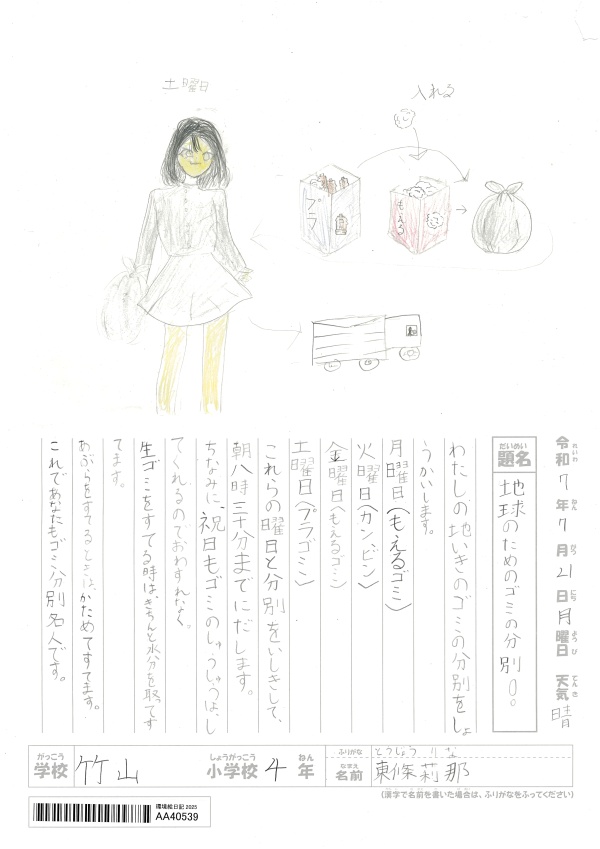 土曜日
入れる
プラ
もえる
令和7年7月21日月曜日 天気 晴
れいわ ねん がつ にち ようび てんき
だいめい
題名
地球のためのゴミの分別。
わたしの地いきのゴミの分別をしょ
うかいします。
月曜日(もえるゴミ)
火曜日(カン、ビン)
金曜日(もえるゴミ)
土曜日(プラゴミ)
これらの曜日と分別をいしきして、
朝八時三十分までにだします。
ちなみに、祝日もゴミのしゅうしゅうは、し
てくれるのでおわすれなく。
生ゴミをすてる時は、きちんと水分を取ってす
てます。
あぶらをすてるときは、かためてすてます。
これであなたもゴミ分別名人です。
がっこう しょうがっこう ねん
学校 竹山 小学校 4年
ふりがな とうしょう りな
なまえ
名前 東條莉那
(漢字で名前を書いた場合は、ふりがなをふってください)
環境絵日記 2025
AA40539